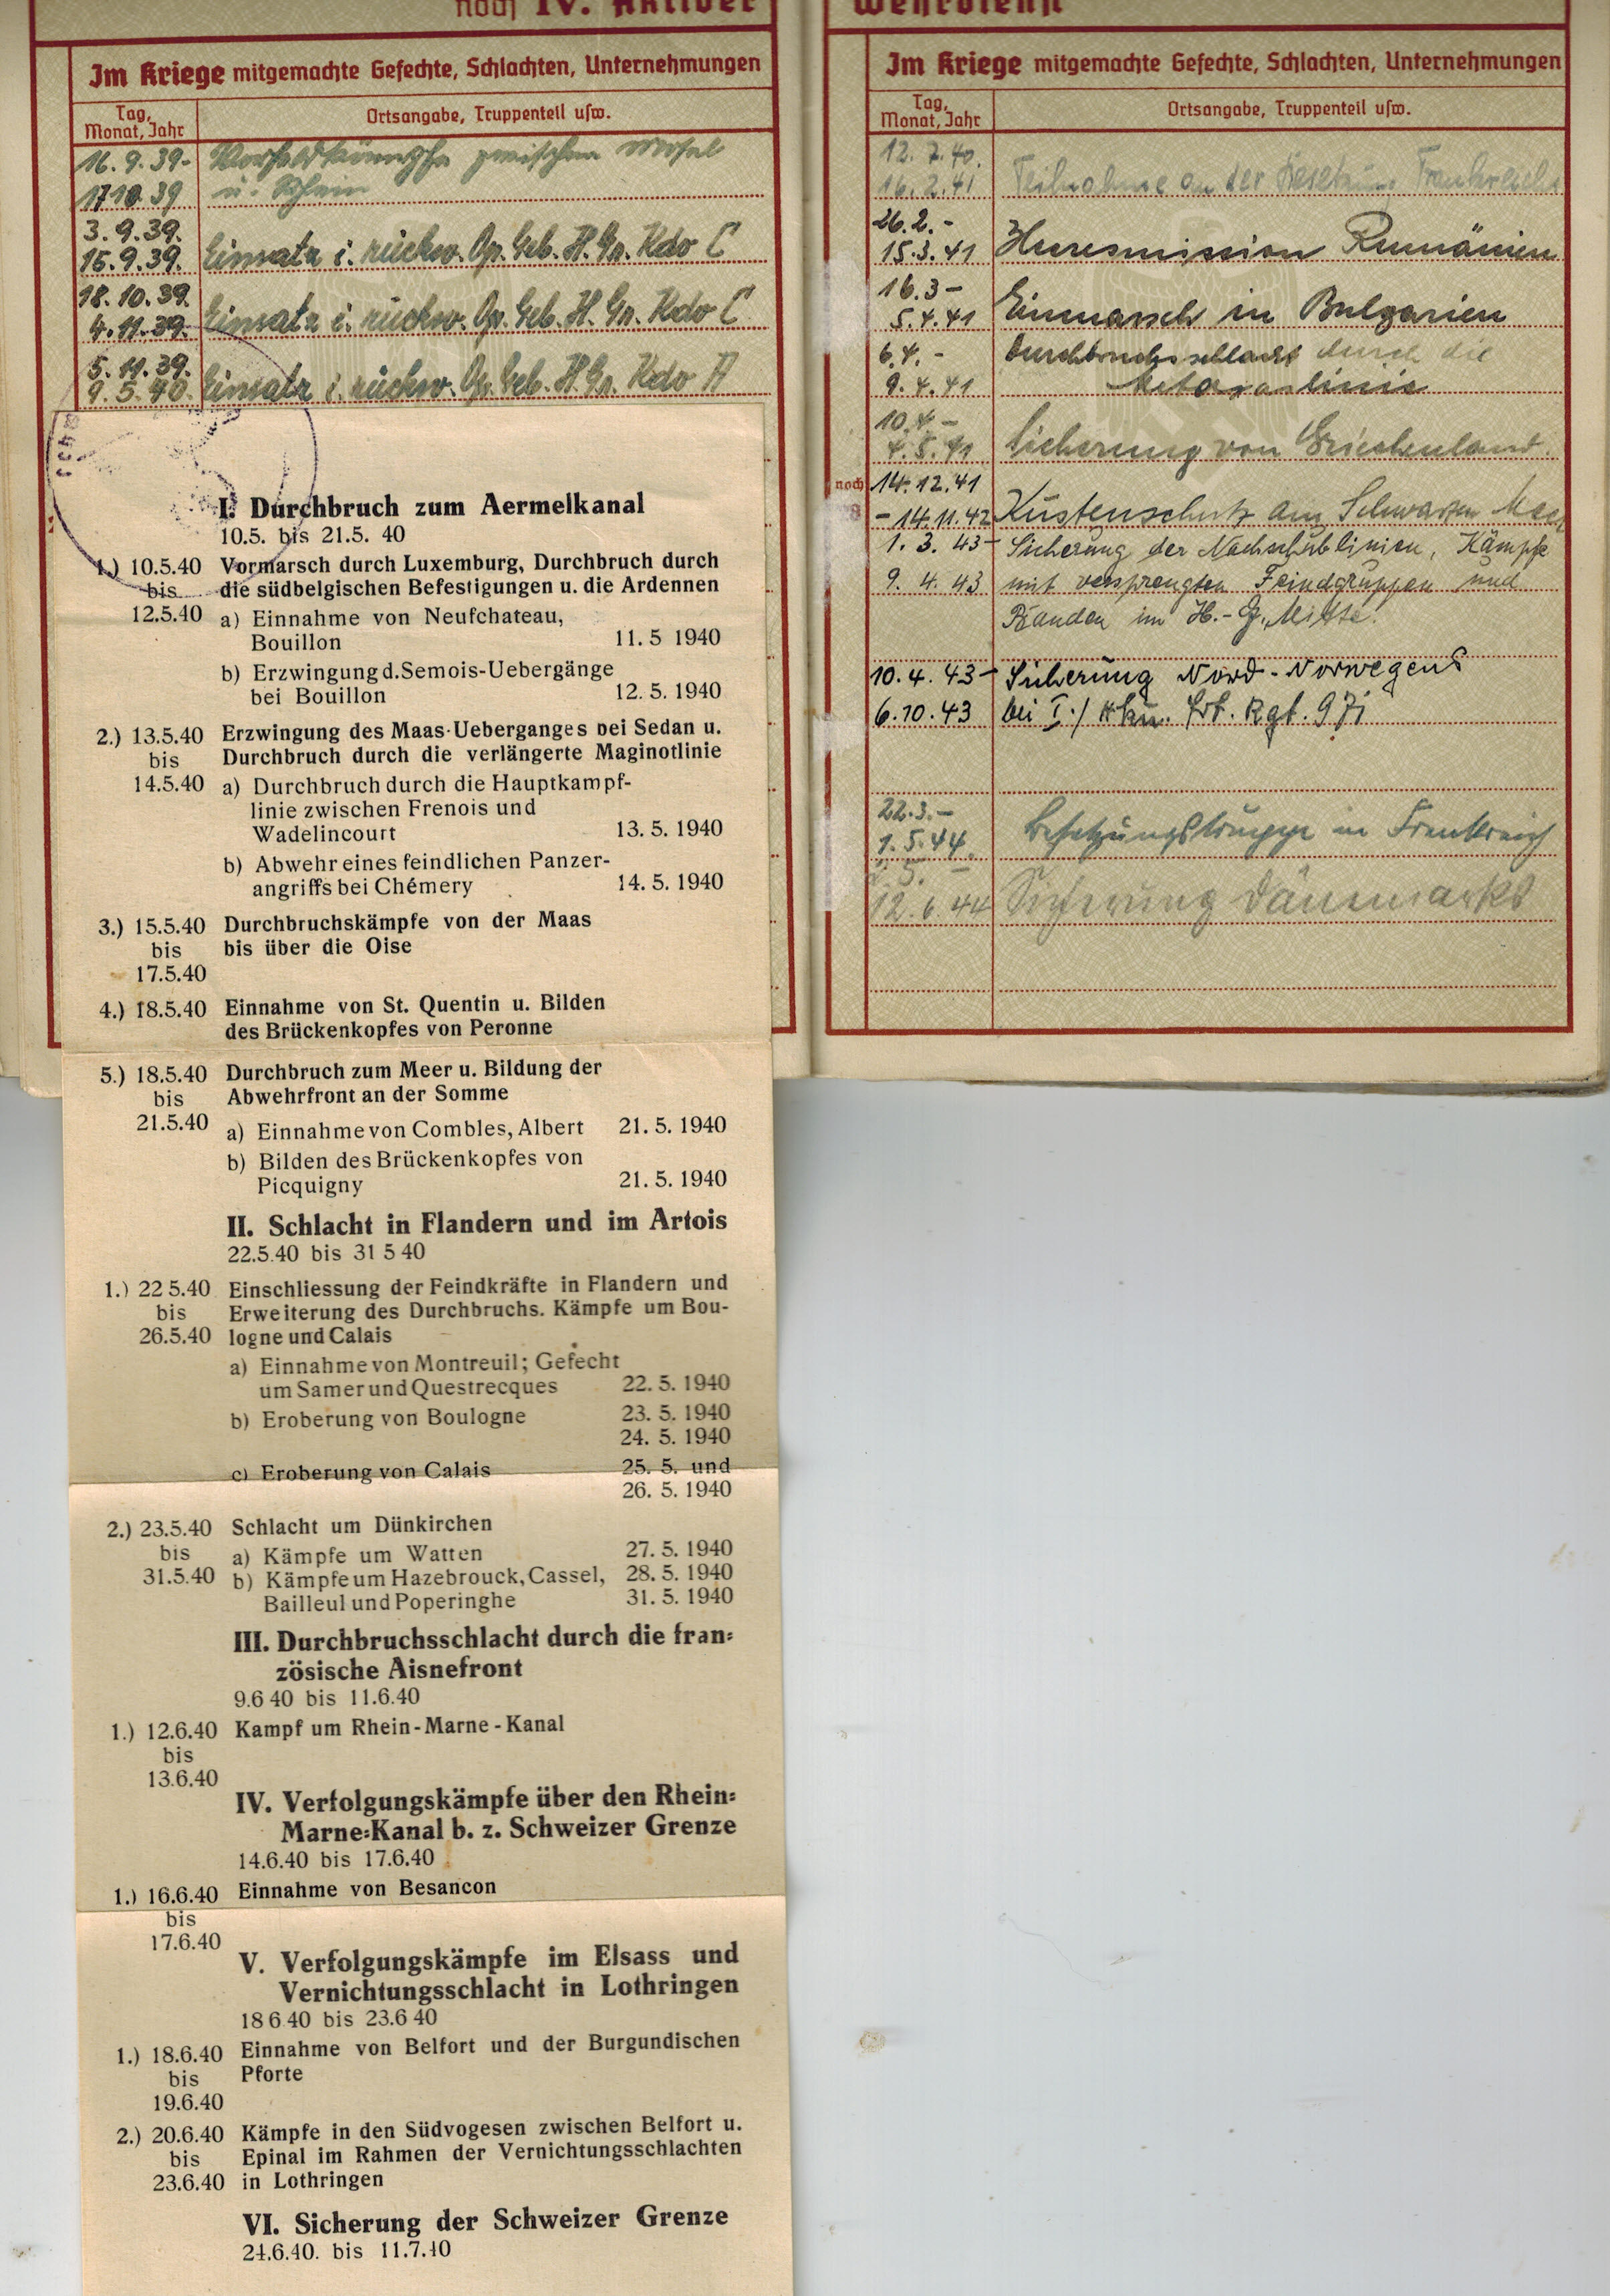 noch IV. Aktiver
Im Kriege mitgemachte Gefechte, Schlachten, Unternehmungen
Tag,
Monat, Jahr
Ortsangabe, Truppenteil usw.
16. 9. 39-
Vorfeldkämpfe zwischen Mosel
17 10. 39
u. Rhein
3. 9. 39.
15. 9. 39.
Einsatz i. rückw. Op. Geb. H. Gr. Kdo C
18. 10. 39.
4. 11. 39.
Einsatz i. rückw. Op. Geb. H. Gr. Kdo C
5. 11. 39.
9. 5. 40.
Einsatz i. rückw. Op. Geb. H. Gr. Kdo A
I. Durchbruch zum Aermelkanal
10.5. bis 21.5. 40
1.) 10.5.40 Vormarsch durch Luxemburg, Durchbruch durch
bis die südbelgischen Befestigungen u. die Ardennen
12.5.40 a) Einnahme von Neufchateau,
Bouillon 11. 5 1940
b) Erzwingung d. Semois-Uebergänge
bei Bouillon 12. 5. 1940
2.) 13.5.40 Erzwingung des Maas-Ueberganges bei Sedan u.
bis Durchbruch durch die verlängerte Maginotlinie
14.5.40 a) Durchbruch durch die Hauptkampf-
linie zwischen Frenois und
Wadelincourt 13. 5. 1940
b) Abwehr eines feindlichen Panzer-
angriffs bei Chémery 14. 5. 1940
3.) 15.5.40 Durchbruchskämpfe von der Maas
bis bis über die Oise
17.5.40
4.) 18.5.40 Einnahme von St. Quentin u. Bilden
des Brückenkopfes von Peronne
5.) 18.5.40 Durchbruch zum Meer u. Bildung der
bis Abwehrfront an der Somme
21.5.40 a) Einnahme von Combles, Albert 21. 5. 1940
b) Bilden des Brückenkopfes von
Picquigny 21. 5. 1940
II. Schlacht in Flandern und im Artois
22.5.40 bis 31 5 40
1.) 22 5.40 Einschliessung der Feindkräfte in Flandern und
bis Erweiterung des Durchbruchs. Kämpfe um Bou-
26.5.40 logne und Calais
a) Einnahme von Montreuil; Gefecht
um Samer und Questrecques 22. 5. 1940
b) Eroberung von Boulogne 23. 5. 1940
24. 5. 1940
c) Eroberung von Calais 25. 5. und
26. 5. 1940
2.) 23.5.40 Schlacht um Dünkirchen
bis a) Kämpfe um Watten 27. 5. 1940
31.5.40 b) Kämpfe um Hazebrouck, Cassel, 28. 5. 1940
Bailleul und Poperinghe 31. 5. 1940
III. Durchbruchsschlacht durch die fran-
zösische Aisnefront
9.6 40 bis 11.6.40
1.) 12.6.40 Kampf um Rhein-Marne-Kanal
bis
13.6.40
IV. Verfolgungskämpfe über den Rhein-
Marne-Kanal b. z. Schweizer Grenze
14.6.40 bis 17.6.40
1.) 16.6.40 Einnahme von Besancon
bis
17.6.40
V. Verfolgungskämpfe im Elsass und
Vernichtungsschlacht in Lothringen
18 6 40 bis 23.6 40
1.) 18.6.40 Einnahme von Belfort und der Burgundischen
bis Pforte
19.6.40
2.) 20.6.40 Kämpfe in den Südvogesen zwischen Belfort u.
bis Epinal im Rahmen der Vernichtungsschlachten
23.6.40 in Lothringen
VI. Sicherung der Schweizer Grenze
24.6.40. bis 11.7.40
Wehrdienst
Im Kriege mitgemachte Gefechte, Schlachten, Unternehmungen
Tag,
Monat, Jahr
Ortsangabe, Truppenteil usw.
12. 7. 40.
16. 2. 41 Teilnahme an der Besetzung Frankreichs
26. 2. -
15. 3. 41 Heeresmission Rumänien
16. 3 -
5. 4. 41 Einmarsch in Bulgarien
6. 4. - Durchbruchsschlacht durch die
9. 4. 41 Metaxaslinie
10. 4 -
4. 5. 41 Sicherung von Griechenland.
noch 14. 12. 41
- 14. 11. 42 Küstenschutz am Schwarzen Meer
1. 3. 43 - Sicherung der Nachschublinien, Kämpfe
9. 4. 43 mit versprengten Feindgruppen und
Banden im H.-G. Mitte.
10. 4. 43 - Sicherung Nord-Norwegens
6. 10. 43 bei I./ Rgt. 971
22. 3. -
1. 5. 44. Besatzungstruppe in Frankreich
5. -
12. 6. 44 Sicherung Dänemarks